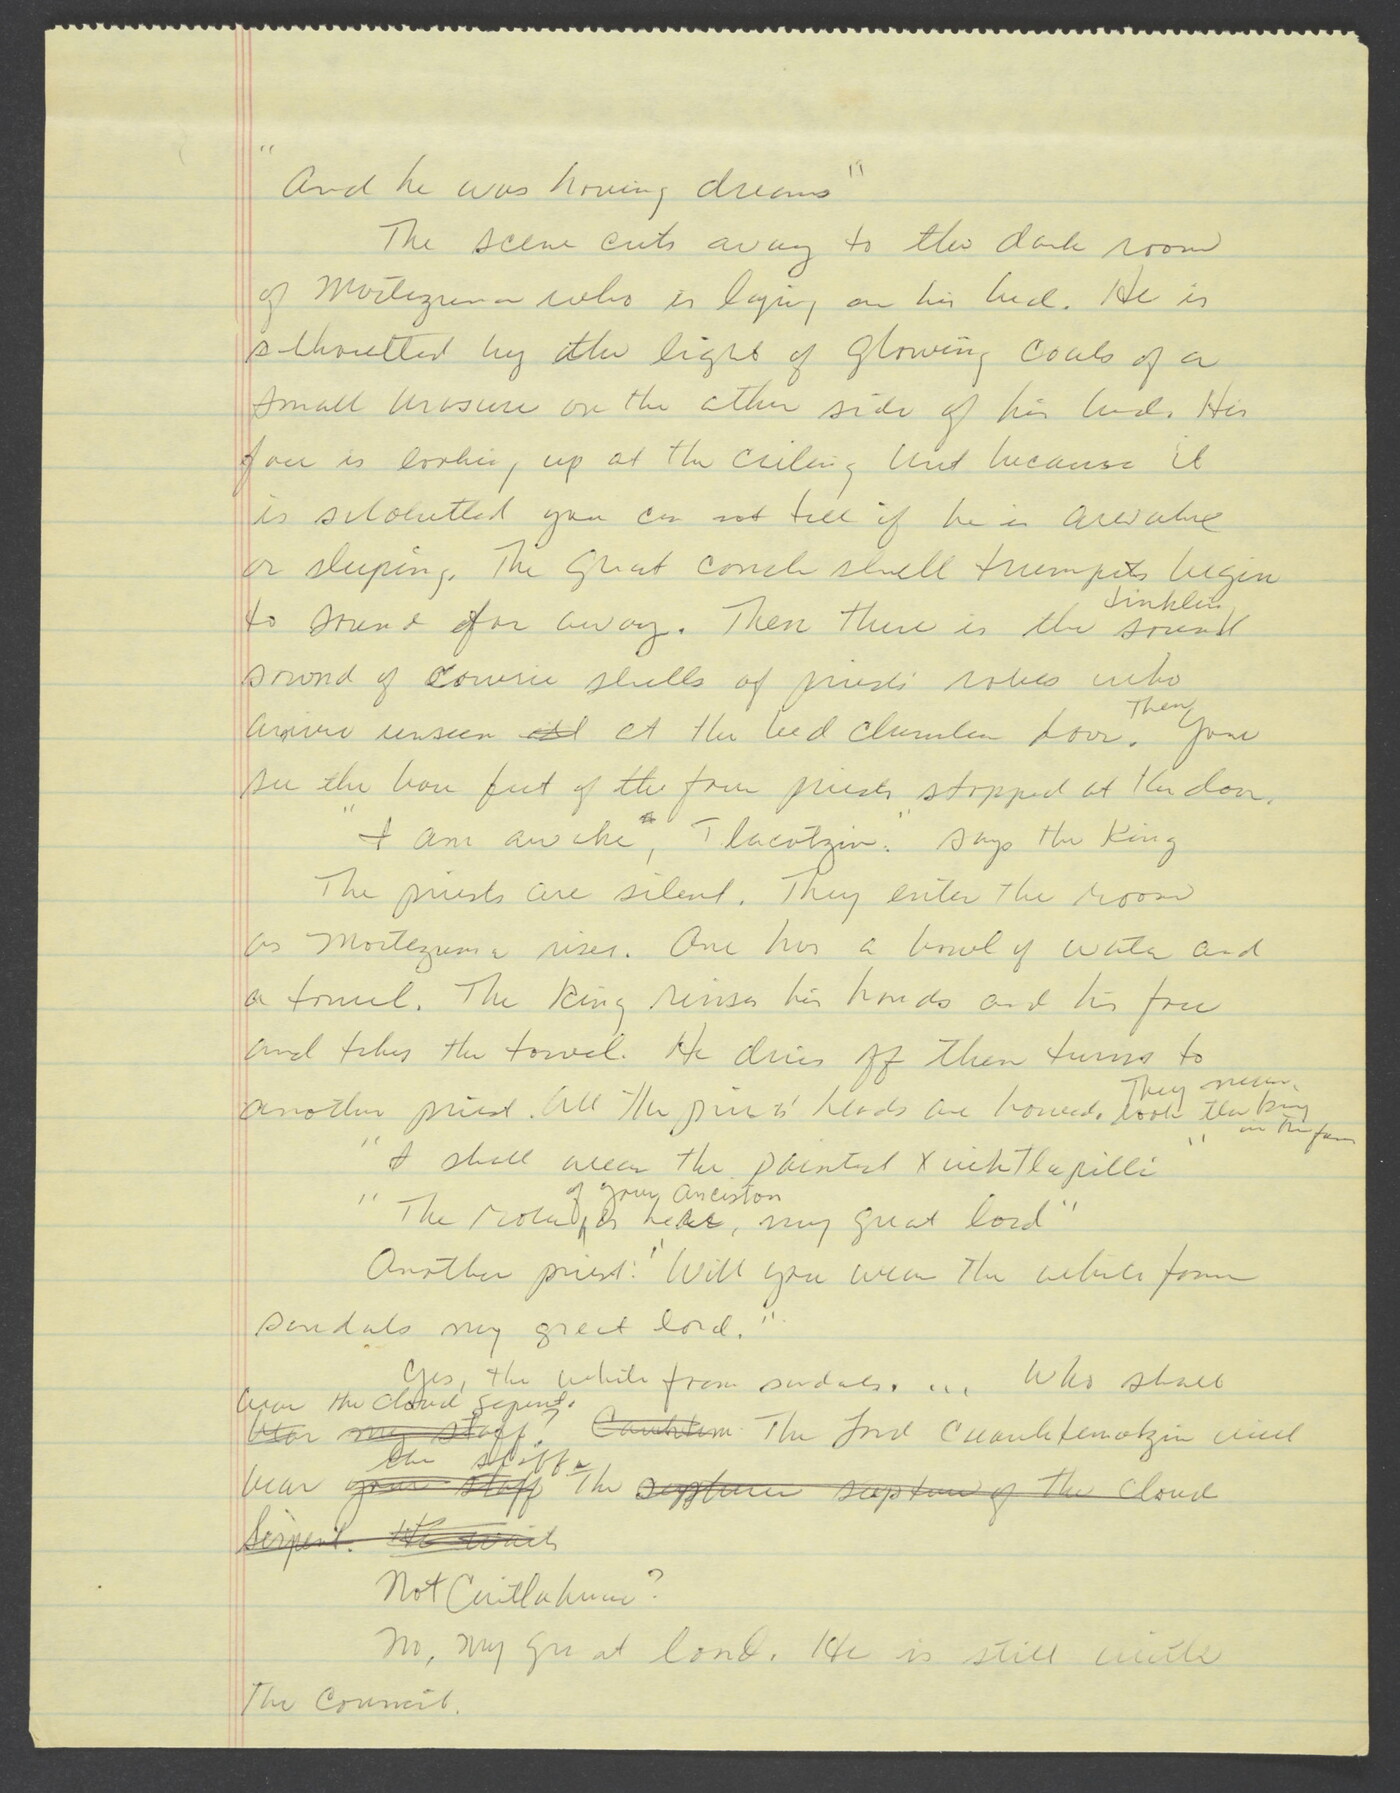 "And he was having dreams"
The scene cuts away to the dark room
of Moctezuma who is laying on his bed. He is
silhouetted by the light of glowing coals of a
small brasure on the other side of his bed. His
face is looking up at the ceiling but because it
is silouetted you can not tell if he is awake
or sleeping. The great conch shell trumpets begin
tinkling
to sound far away. Then there is the sound
sound of cowrie shells of priests' robes who
Then
arrive unseen at the bed chamber door. You
see the bare feet of the four priests stopped at the door.
"I am awake, Tlacotzin." says the King
The priests are silent. They enter the room
as Moctezuma rises. One has a bowl of water and
a towel. The King rinses his hands and his face
and takes the towel. He dries off then turns to
They never
another priest. All the priests' heads are bowed. look the king
in the face
"I shall wear the painted Xiuhtlapilli"
of your ancestors
"The robe is here, my great lord"
Another priest: "Will you wear the white fawn
sandals my great lord."
Yes, the white fawn sandals. ... Who shall
bear the cloud serpent.
bear my staff? Cauhtem The Lord Cuauhtemotzin will
the staff.
bear your staff The scepture of the cloud
Serpent. He waits
Not Cuitlahuac?
No, my great lord. He is still with
the Council.